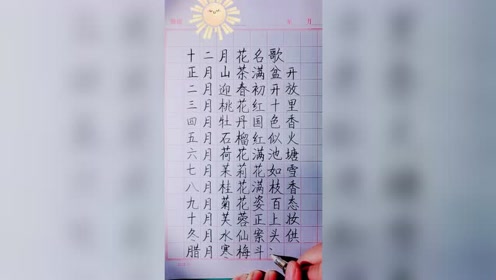 十二月花名歌
正月山茶满盆开
二月迎春初开放
三月桃花红十里
四月牡丹国色香
五月石榴红似火
六月荷花满池塘
七月茉莉花如雪
八月桂花满枝香
九月菊花姿百态
十月芙蓉正上妆
冬月水仙案头供
腊月寒梅斗